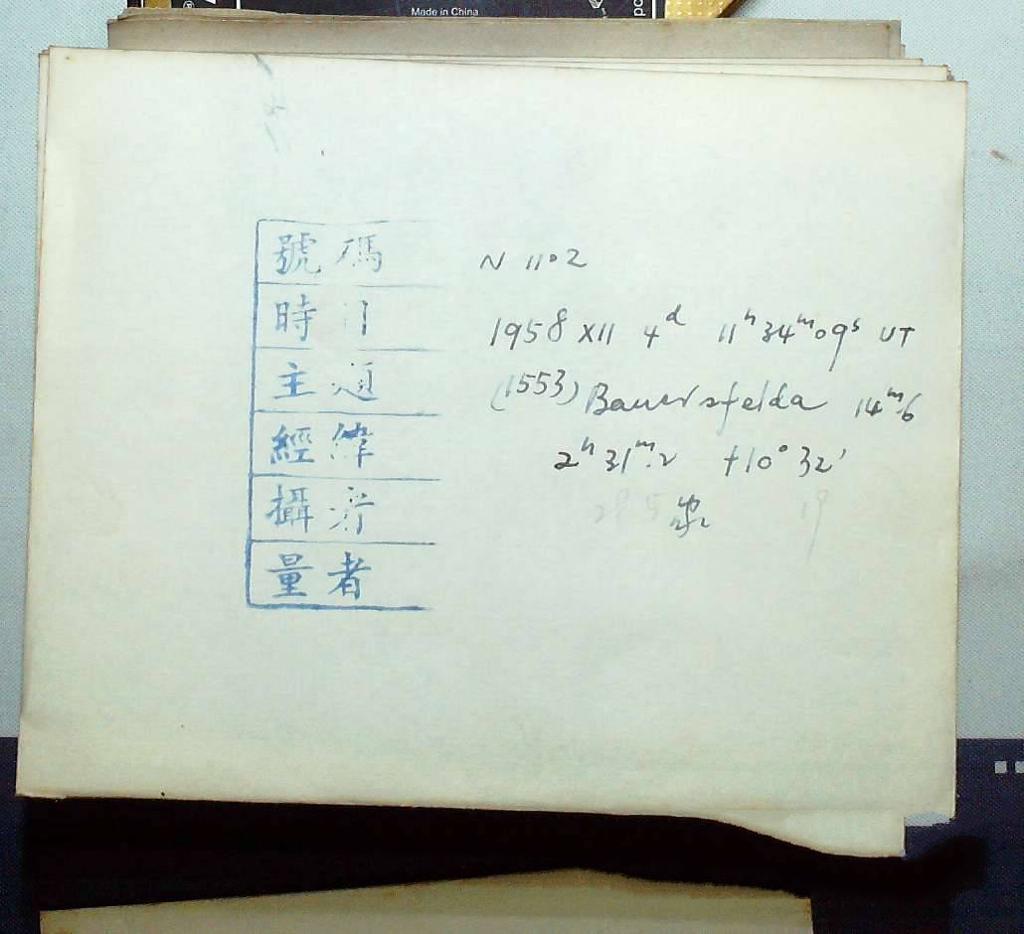 Made in China
號碼 N 1102
時 1958 XII 4ᵈ 11ʰ34ᵐ09ˢ UT
主題 (1553) Bauersfelda 14ᵐ.6
經緯 2ʰ31ᵐ.2 +10°32'
攝
量者